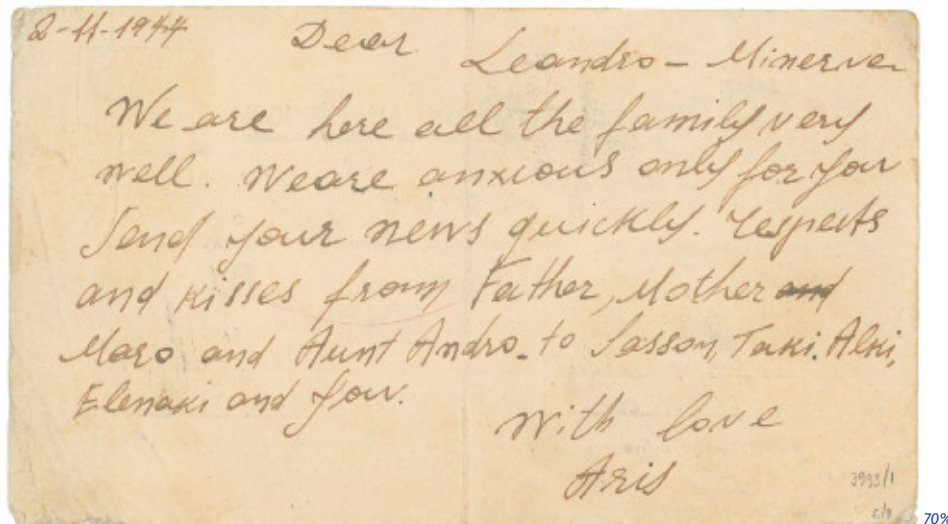 2-11-1944
Dear
Leandro - Minerva
We are here all the family very
well. We are anxious only for you
Send your news quickly. respects
and kisses from Father, Mother and
Maro and Aunt Andro. to Sasson, Taki. Alki,
Elenaki and you.
With love
Aris
3993/1
70%